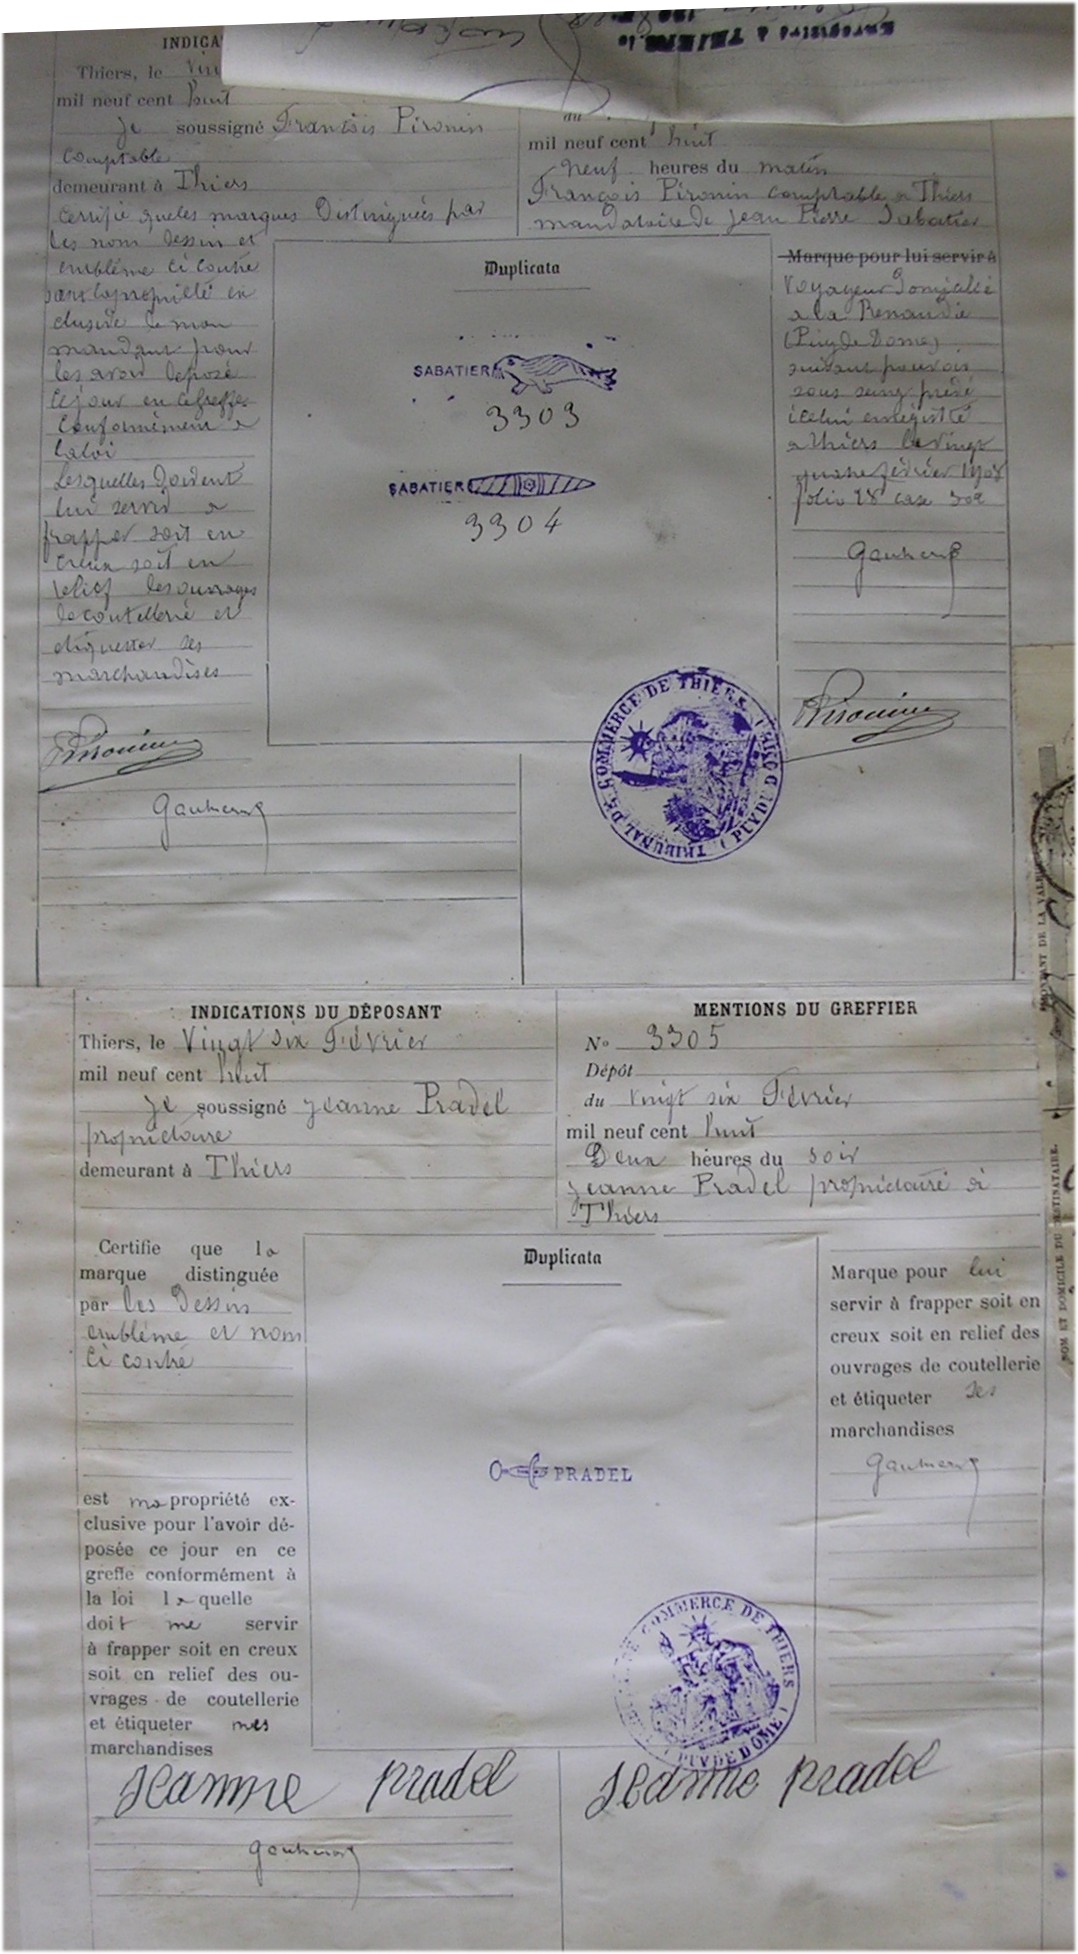 INDICA
Thiers, le
mil neuf cent huit
Je soussigné François Pironin
Comptable
demeurant à Thiers
Certifie que les marques Distinguées par
les nom dessin et
emblême ci contre
sont la propriété ex
clusive de mon
mandant pour
les avoir déposé
ce jour en ce greffe
Conformément à
la loi
Lesquelles doivent
lui servir à
frapper soit en
creux soit en
relief les ouvrages
de coutellerie et
étiqueter ses
marchandises
Pironin
Gauheron
Enregistré à THIERS, le
du
mil neuf cent huit
Neuf heures du matin
François Pironin comptable à Thiers
mandataire de Jean Pierre Sabatier
Duplicata
SABATIER
3303
SABATIER
3304
Marque pour lui servir à
Voyageur Domicilié
à la Renaudie
(Puy de Dome)
suivant pouvoir
sous seing privé
icelui enregistré
a Thiers le vingt
quatre février 1908
folio 28 case 302
Pironin
TRIBUNAL DE COMMERCE DE THIERS (PUY DE DOME)
MONTANT DE LA VALEUR
NOM ET DOMICILE DU DESTINATAIRE.
INDICATIONS DU DÉPOSANT
Thiers, le Vingt six Février
mil neuf cent huit
Je soussigné Jeanne Pradel
propriétaire
demeurant à Thiers
Certifie que la
marque distinguée
par les Dessin
emblême et nom
Ci contre
est ma propriété ex-
clusive pour l'avoir dé-
posée ce jour en ce
greffe conformément à
la loi laquelle
doit me servir
à frapper soit en creux
soit en relief des ou-
vrages de coutellerie
et étiqueter mes
marchandises
Jeanne Pradel
MENTIONS DU GREFFIER
No 3305
Dépôt
du vingt six Février
mil neuf cent huit
Deux heures du soir
Jeanne Pradel propriétaire à
Thiers
Duplicata
PRADEL
Marque pour lui
servir à frapper soit en
creux soit en relief des
ouvrages de coutellerie
et étiqueter ses
marchandises
COMMERCE DE THIERS (PUY DE DOME)
Jeanne Pradel